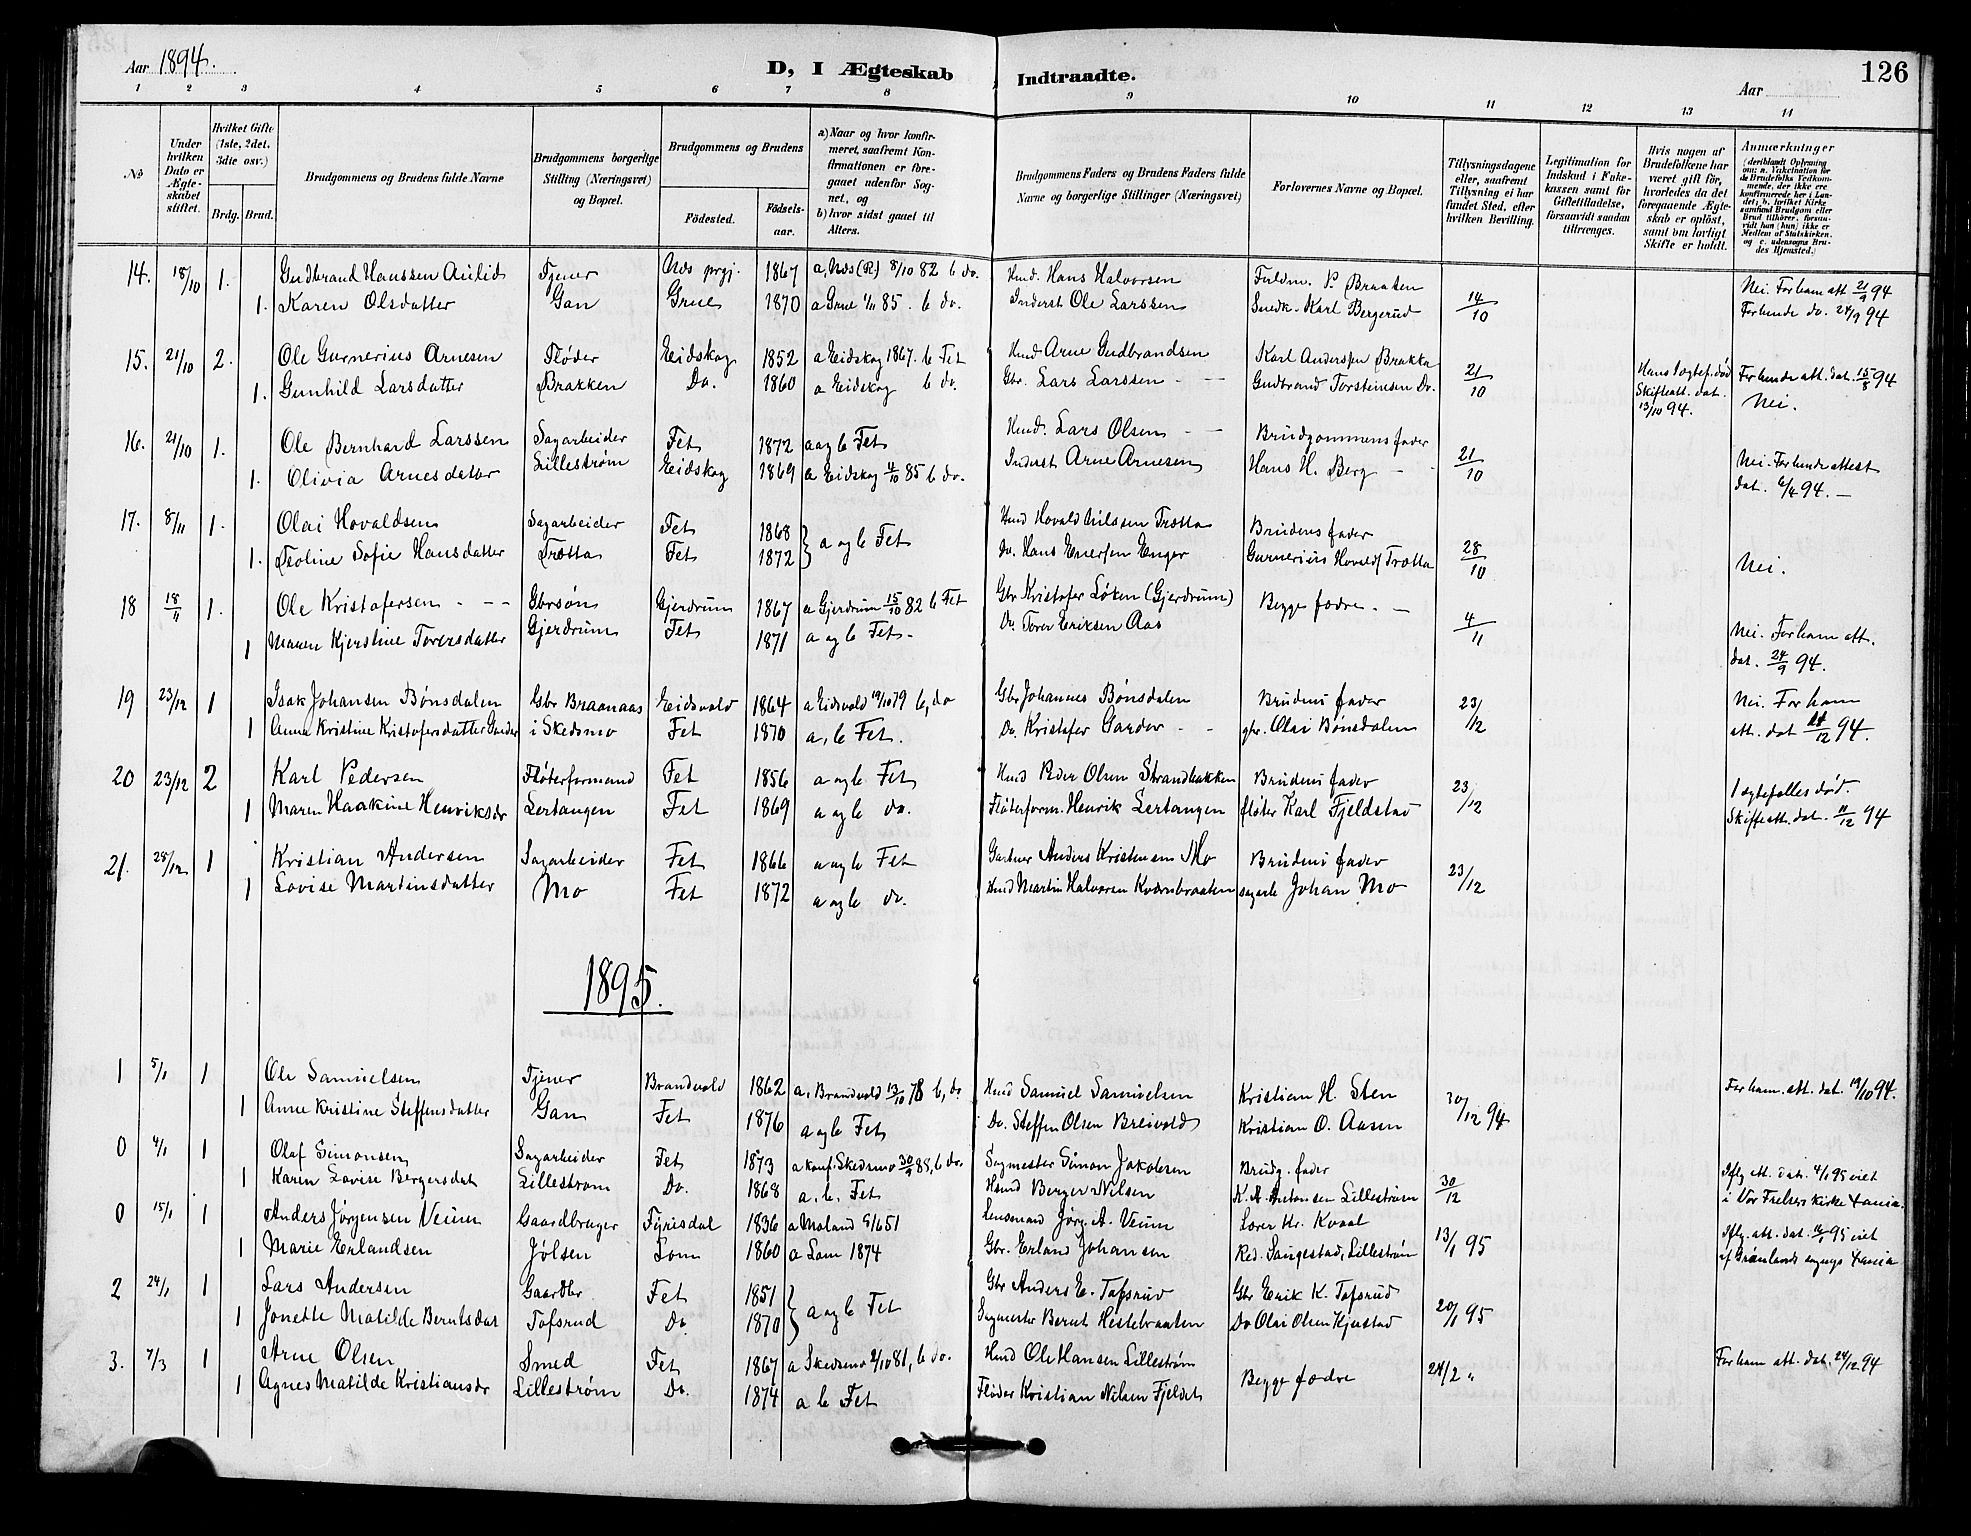 Aar 1894.
D, I Ægteskab Indtraadte.
126
Aar
1 2 3 4 5 6 7 8 9 10 11 12 13 14
No
Under hvilken Dato er Ægteskabet stiftet.
Hvilket Gifte (1ste, 2det, 3die osv.)
Brdg. Brud.
Brudgommens og Brudens fulde Navne
Brudgommens borgerlige Stilling (Næringsvei) og Bopæl.
Brudgommens og Brudens
Fødested.
Fødselsaar.
a) Naar og hvor konfirmeret, saafremt Konfirmationen er foregaaet udenfor Sognet, og
b) hvor sidst gaaet til Alters.
Brudgommens Faders og Brudens Faders fulde Navne og borgerlige Stillinger (Næringsvei)
Forlovernes Navne og Bopæl.
Tillysningsdagene eller, saafremt Tillysning ei har fundet Sted, efter hvilken Bevilling.
Legitimation for Indskud i Enkekassen samt for Giftetilladelse, forsaavidt saadan tiltrænges.
Hvis nogen af Brudefolkene har været gift før, hvorledes da det foregaaende Ægteskab er opløst, samt om lovligt Skifte er holdt.
Anmærkninger
14. 18/10 1. Gudbrand Hanssen Aulid Tjener Næs prgj. 1867 a, Næs (R) 8/10 82 b do. Hmd. Hans Halvorsen Fuldm. P. Braaten 14/10 Nei. For ham att. 21/9 94
1. Karen Olsdatter Gan Grue 1870 a Grue 1/11 85. b do. Inderst Ole Larssen Snedk. Karl Bergerud For hende do. 24/9 94
15. 21/10 2. Ole Gurnerius Arnesen Fløder Eidskog 1852 a Eidskog 1867. b Fet Hmd Arne Gudbrandsen Karl Anderssen Brakka 21/10 Hans 1 ægtef. død For hende att. dat. 15/8 94
1. Gunhild Larsdatter Brakken Do. 1860 a Eidskog b do. Gbr. Lars Larssen Gudbrand Torsteinsen Do. Skifteatt. dat. 13/10 94. Nei.
16. 21/10 1. Ole Bernhard Larssen Sagarbeider Fet 1872 a og b Fet Hmd. Lars Olsen Brudgommens fader 21/10
1. Olivia Arnesdatter Lillestrøm Eidskog 1869 a Eidskog 4/10 85 b do. Inderst Arne Arnesen Hans H. Berg Nei. For hende attest dat. 6/4 94.
17. 8/11 1. Olai Hovaldsen Sagarbeider Fet 1868 a og b Fet Hmd Hovald Nilssen Trætta Brudens fader 28/10
1. Toline Sofie Hansdatter Trætta Fet 1872 Do. Hans Enersen Enger Gurnerius Hovalds Trætta Nei.
18 18/11 1. Ole Kristofersen Gbrsøn Gjerdrum 1867 a Gjerdrum 15/10 82 b Fet Gbr Kristofer Løken (Gjerdrum) Begge fædre. 4/11
1 Maren Kjerstine Toresdatter Gjerdrum Fet 1871 a og b Fet. Do. Tore Eriksen Aas Nei. For ham att. dat. 24/9 94.
19 23/12 1 Isak Johansen Bønsdalen Gbr Braanaas Eidsvold 1864 a Eidsvold 19/10 79 b, do Gbr Johannes Bønsdalen Brudens fader 23/12 Nei. For ham
1 Anna Kristine Kristofersdatter Garder i Skedsmo Fet 1870 a, b Fet. Do. Kristofer Garder gbr. Olai Bønsdalen att. dat 21/12 94.
20 23/12 2 Karl Pedersen Fløterformand Fet 1856 a og b Fet Hmd Peder Olsen Strandbakken Brudens fader 23/12 1 ægtefælles død.
1 Maren Haakine Henriksdr Lertangen Fet 1869 a og b do. Fløterform. Henrik Lertangen fløter Karl Fjeldstad Skifteatt. dat. 11/12 94
21. 28/12 1 Kristian Andersen Sagarbeider Fet 1866 a og b Fet Gartner Anders Kristensen Mo Brudens fader 23/12
1 Lovise Martinsdatter Mo Fet 1872 a og b do. Hmd Martin Halvorsen Kværnbraaten sagarb Johan Mo
1895.
1 5/1 1 Ole Samuelsen Tjener Brandvold 1862 a, Brandvold 13/10 78 b, do Hmd Samuel Samuelsen Kristian H. Sten 30/12 94 For ham. att. dat. 19/10 94.
1 Anne Kristine Steffensdatter Gan Fet 1876 a og b Fet Do. Steffen Olsen Breivold Kristian O. Aasen
0 4/1 1 Olaf Simonsen Sagarbeider Fet 1873 a konf. Skedsmo 30/9 88, b do. Sagmester Simon Jakobsen Brudg. fader 30/12 Iflg att. dat. 4/1 95 viet
1 Karen Lovise Bergersdat Lillestrøm Do. 1868 a. b. Fet Hmd Berger Nilsen K. A. Antonsen Lillestrøm i Vor Frelsers kirke Xania.
0 15/1 1 Anders Jørgensen Veum Gaardbruger Fyrisdal 1836 a Moland 9/6 51 Lensmand Jørg. A. Veum Lærer Hr. Kvaal 13/1 95 Iflg. att. dat. 15/1 95 viet
1 Marie Erlandsen Jølsen Lom 1860 a Lom 1874 Gbr. Erland Johansen Red. Sangestad, Lillestrøm af Grønlands sogneps Xania
2 24/1 1 Lars Andersen Gaardbr Fet 1851 a og b Fet Gbr Anders E. Tofsrud Gbr Erik K. Tofsrud 20/1 95
1 Jonette Matilde Berntsdat Tofsrud Do. 1870 Sagmester Bernt Hestebraaten Do Olai Olsen Kjustad
3. 7/3 1 Arne Olsen Smed Fet 1867 a Skedsmo 2/10 81, b do. Hmd Ole Hansen Lillestrøm Begge fædre 24/2 " For ham att. dat. 24/12 94
1 Agnes Matilde Kristiansdr Lillestrøm Do. 1874 a b Fet Fløder Kristian Nilsen Fjeldet